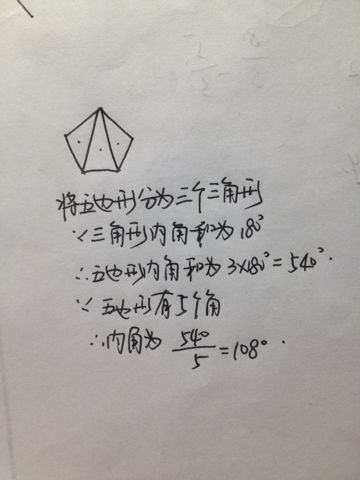 将五边形分为三个三角形
∵三角形内角和为180°
∴五边形内角和为3×180°=540°.
∵五边形有5个角
∴内角为 540/5 =108°.